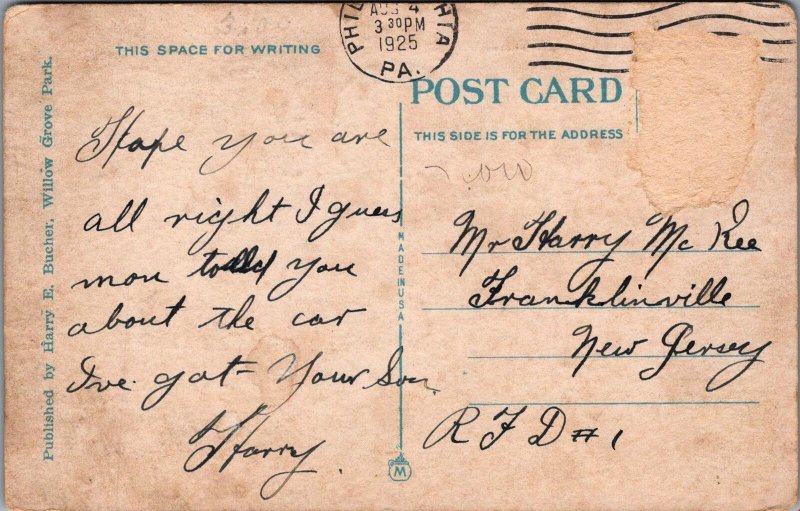 PHIL HIA
AUG 4
3 30PM
1925
PA.
THIS SPACE FOR WRITING
POST CARD
THIS SIDE IS FOR THE ADDRESS
Published by Harry E. Bucher, Willow Grove Park.
MADE IN USA
Hope you are
all right I guess
mon told you
about the car
I've got = Your Son
Harry.
Mr Harry Mc Kee
Franklinville
New Jersey
R F D # 1
M